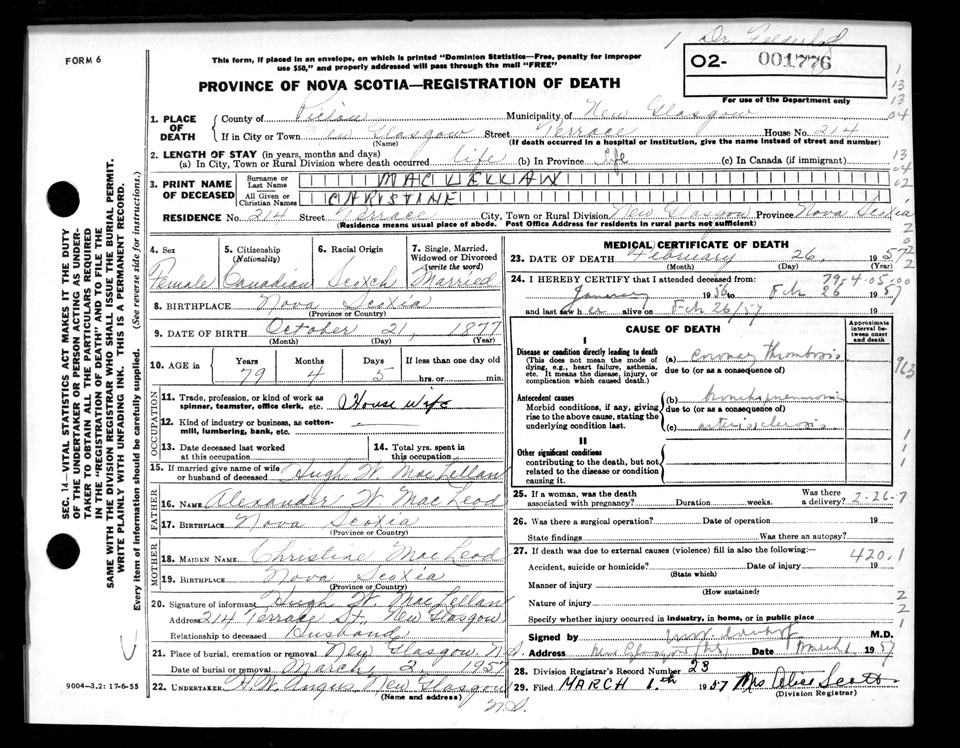 1 Dr.
FORM 6
This form, if placed in an envelope, on which is printed "Dominion Statistics—Free, penalty for improper
use $50," and properly addressed will pass through the mail "FREE"
02- 001776
For use of the Department only
PROVINCE OF NOVA SCOTIA—REGISTRATION OF DEATH
1. PLACE OF DEATH
County of Pictou Municipality of New Glasgow
If in City or Town New Glasgow Street Terrace House No. 214
(Name) (If death occurred in a hospital or institution, give the name instead of street and number)
2. LENGTH OF STAY (in years, months and days)
(a) In City, Town or Rural Division where death occurred life (b) In Province life (c) In Canada (if immigrant)
3. PRINT NAME OF DECEASED
Surname or Last Name MACLELLAN
All Given or Christian Names CHRISTINE
RESIDENCE No. 214 Street Terrace City, Town or Rural Division New Glasgow Province Nova Scotia
(Residence means usual place of abode. Post Office Address for residents in rural parts not sufficient)
4. Sex Female
5. Citizenship (Nationality) Canadian
6. Racial Origin Scotch
7. Single, Married, Widowed or Divorced (write the word) Married
8. BIRTHPLACE Nova Scotia
(Province or Country)
9. DATE OF BIRTH October 21, 1877
(Month) (Day) (Year)
10. AGE in Years Months Days If less than one day old
79 4 5 hrs. or min.
OCCUPATION
11. Trade, profession, or kind of work as spinner, teamster, office clerk, etc. House wife
12. Kind of industry or business, as cotton-mill, lumbering, bank, etc.
13. Date deceased last worked at this occupation
14. Total yrs. spent in this occupation
15. If married give name of wife or husband of deceased Hugh W. MacLellan
FATHER
16. NAME Alexander W. MacLeod
17. BIRTHPLACE Nova Scotia
(Province or Country)
MOTHER
18. MAIDEN NAME Christine MacLeod
19. BIRTHPLACE Nova Scotia
(Province or Country)
20. Signature of informant Hugh W. MacLellan
Address 214 Terrace St. New Glasgow
Relationship to deceased Husband
21. Place of burial, cremation or removal New Glasgow, N.S.
Date of burial or removal March 2, 1957
22. UNDERTAKER H.W. Angus, New Glasgow
(Name and address) N.S.
MEDICAL CERTIFICATE OF DEATH
23. DATE OF DEATH February 26, 1957
(Month) (Day) (Year)
24. I HEREBY CERTIFY that I attended deceased from: 79-4-05-00
January 1956 to Feb 26 1957
and last saw her alive on Feb 26/57 19
CAUSE OF DEATH
Approximate interval between onset and death
I
Disease or condition directly leading to death (a) coronary thrombosis
(This does not mean the mode of dying, e.g., heart failure, asthenia, etc. It means the disease, injury, or complication which caused death.)
due to (or as a consequence of)
Antecedent causes (b) bronchopneumonia
Morbid conditions, if any, giving rise to the above cause, stating the underlying condition last.
due to (or as a consequence of)
(c) arteriosclerosis
II
Other significant conditions contributing to the death, but not related to the disease or condition causing it.
25. If a woman, was the death associated with pregnancy? Duration weeks. Was there a delivery? 2-26-7
26. Was there a surgical operation? Date of operation 19
State findings Was there an autopsy?
27. If death was due to external causes (violence) fill in also the following: 420.1
Accident, suicide or homicide? Date of injury 19
(State which)
Manner of injury
(How sustained)
Nature of injury
Specify whether injury occurred in industry, in home, or in public place
Signed by M.D.
Address New Glasgow, N.S. Date March 1 1957
28. Division Registrar's Record Number 23
29. Filed MARCH 1th 1957 Mrs Alice Scott
(Division Registrar)
SEC. 14—VITAL STATISTICS ACT MAKES IT THE DUTY
OF THE UNDERTAKER OR PERSON ACTING AS UNDER-
TAKER TO OBTAIN ALL THE PARTICULARS REQUIRED
IN THE "REGISTRATION OF DEATH" AND TO FILE THE
SAME WITH THE DIVISION REGISTRAR WHO SHALL ISSUE THE BURIAL PERMIT.
WRITE PLAINLY WITH UNFADING INK. THIS IS A PERMANENT RECORD.
Every item of information should be carefully supplied. (See reverse side for instructions.)
9004—3.2: 17-6-55